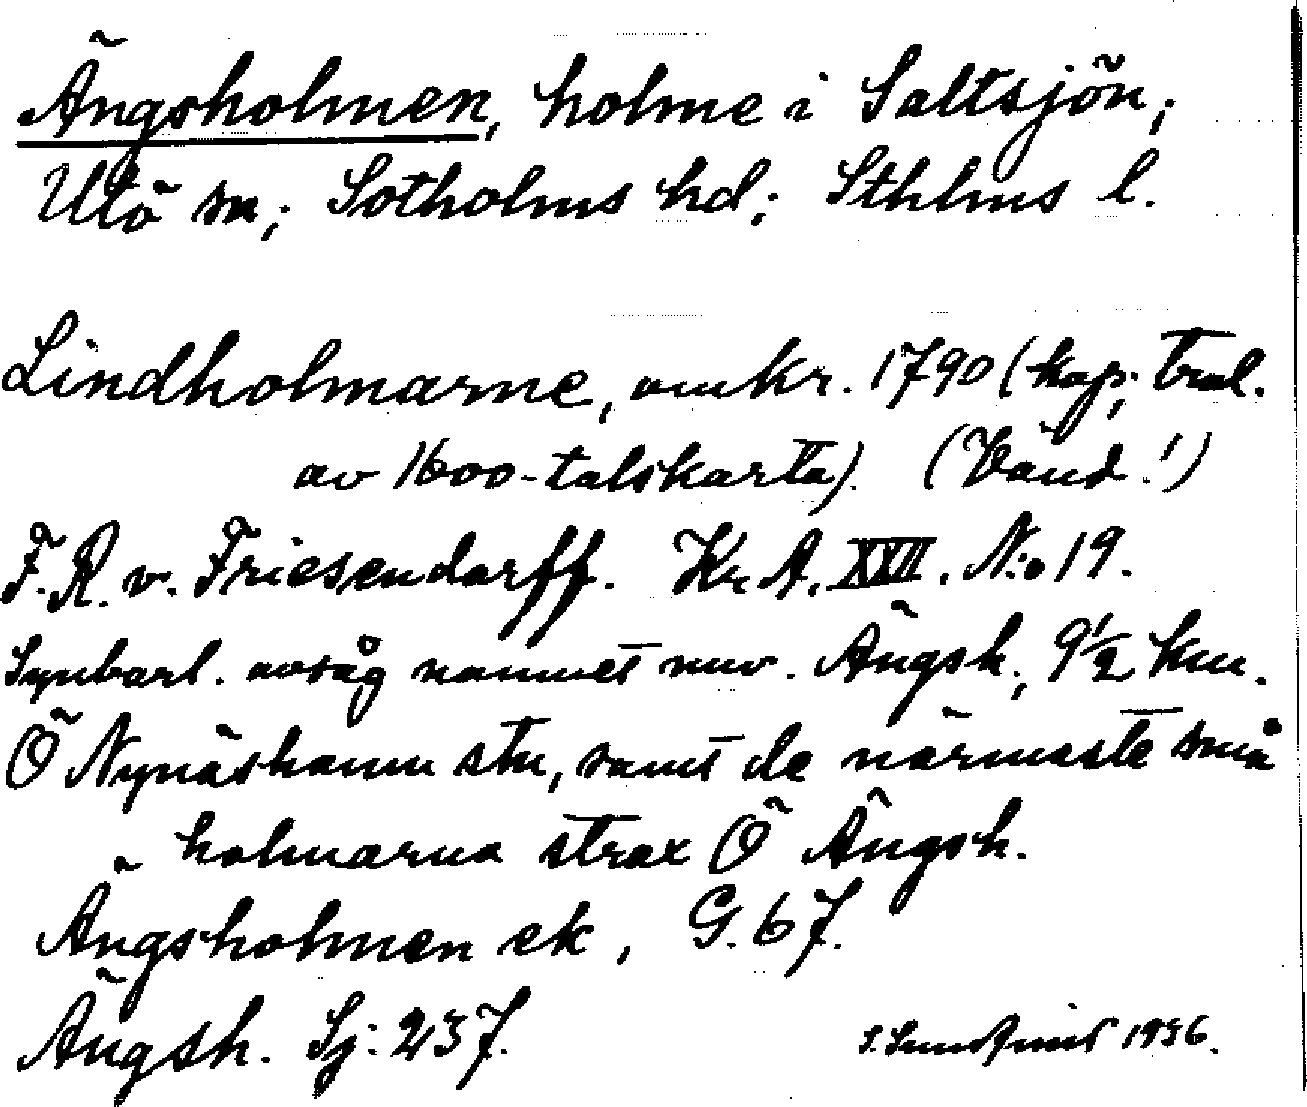 Ängsholmen, holme i Saltsjön;
Utö sn; Sotholms hd; Sthlms l.
Lindholmarne, omkr. 1790 (kop; trol.
av 1600-talskarta). (Vänd!)
F. R. v. Friesendorff. Kr. A. XVII. N:o 19.
Synbarl. avsåg namnet nuv. Ängsh., 9 1/2 km.
Ö Nynäshamn stn, samt de närmaste små
holmarna strax Ö Ängsh.
Ängsholmen ek, G. 67.
Ängsh. Sj: 237.
1936.